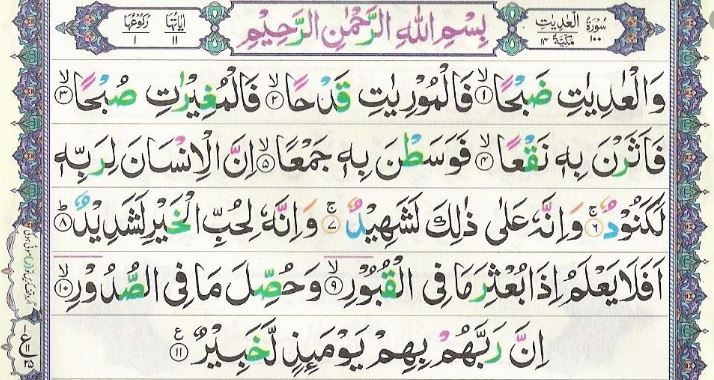 سُوْرَةُ الْعٰدِيٰتِ ١٠٠ مَكِّيَّةٌ ١٤
بِسْمِ اللّٰهِ الرَّحْمٰنِ الرَّحِيْمِ
اٰيَاتُهَا ١١ رُكُوْعُهَا ١
وَالْعٰدِيٰتِ ضَبْحًا ۙ﴿١﴾ فَالْمُوْرِيٰتِ قَدْحًا ۙ﴿٢﴾ فَالْمُغِيْرٰتِ صُبْحًا ۙ﴿٣﴾
فَاَثَرْنَ بِهٖ نَقْعًا ۙ﴿٤﴾ فَوَسَطْنَ بِهٖ جَمْعًا ۙ﴿٥﴾ اِنَّ الْاِنْسَانَ لِرَبِّهٖ
لَكَنُوْدٌ ۚ﴿٦﴾ وَاِنَّهٗ عَلٰى ذٰلِكَ لَشَهِيْدٌ ۚ﴿٧﴾ وَاِنَّهٗ لِحُبِّ الْخَيْرِ لَشَدِيْدٌ ۙ﴿٨﴾
اَفَلَا يَعْلَمُ اِذَا بُعْثِرَ مَا فِى الْقُبُوْرِ ۙ﴿٩﴾ وَحُصِّلَ مَا فِى الصُّدُوْرِ ۙ﴿١٠﴾
اِنَّ رَبَّهُمْ بِهِمْ يَوْمَئِذٍ لَّخَبِيْرٌ ع﴿١١﴾